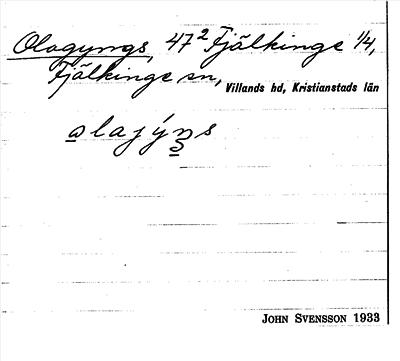 Olagyngs, 47² Fjälkinge 1/4,
Fjälkinge sn, Villands hd, Kristianstads län
a̲lajýn̲s
JOHN SVENSSON 1933